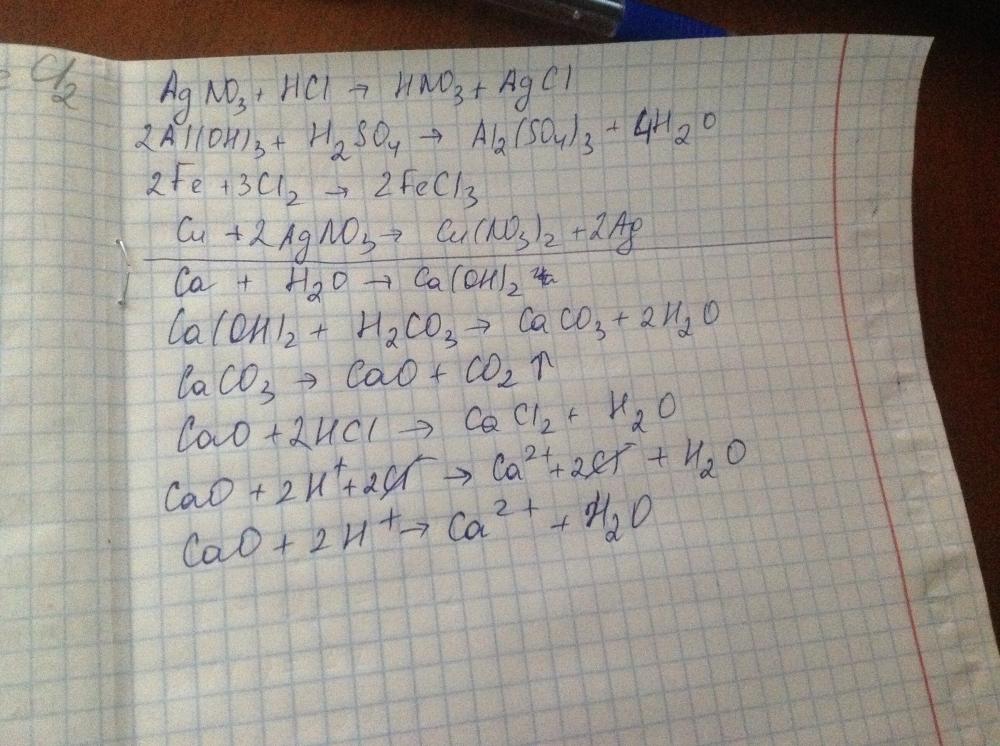 Cl2
AgNO3 + HCl → HNO3 + AgCl
2Al(OH)3 + H2SO4 → Al2(SO4)3 + 4H2O
2Fe + 3Cl2 → 2FeCl3
Cu + 2AgNO3 → Cu(NO3)2 + 2Ag
Ca + H2O → Ca(OH)2
Ca(OH)2 + H2CO3 → CaCO3 + 2H2O
CaCO3 → CaO + CO2 ↑
CaO + 2HCl → CaCl2 + H2O
CaO + 2H⁺ + 2Cl⁻ → Ca²⁺ + 2Cl⁻ + H2O
CaO + 2H⁺ → Ca²⁺ + H2O